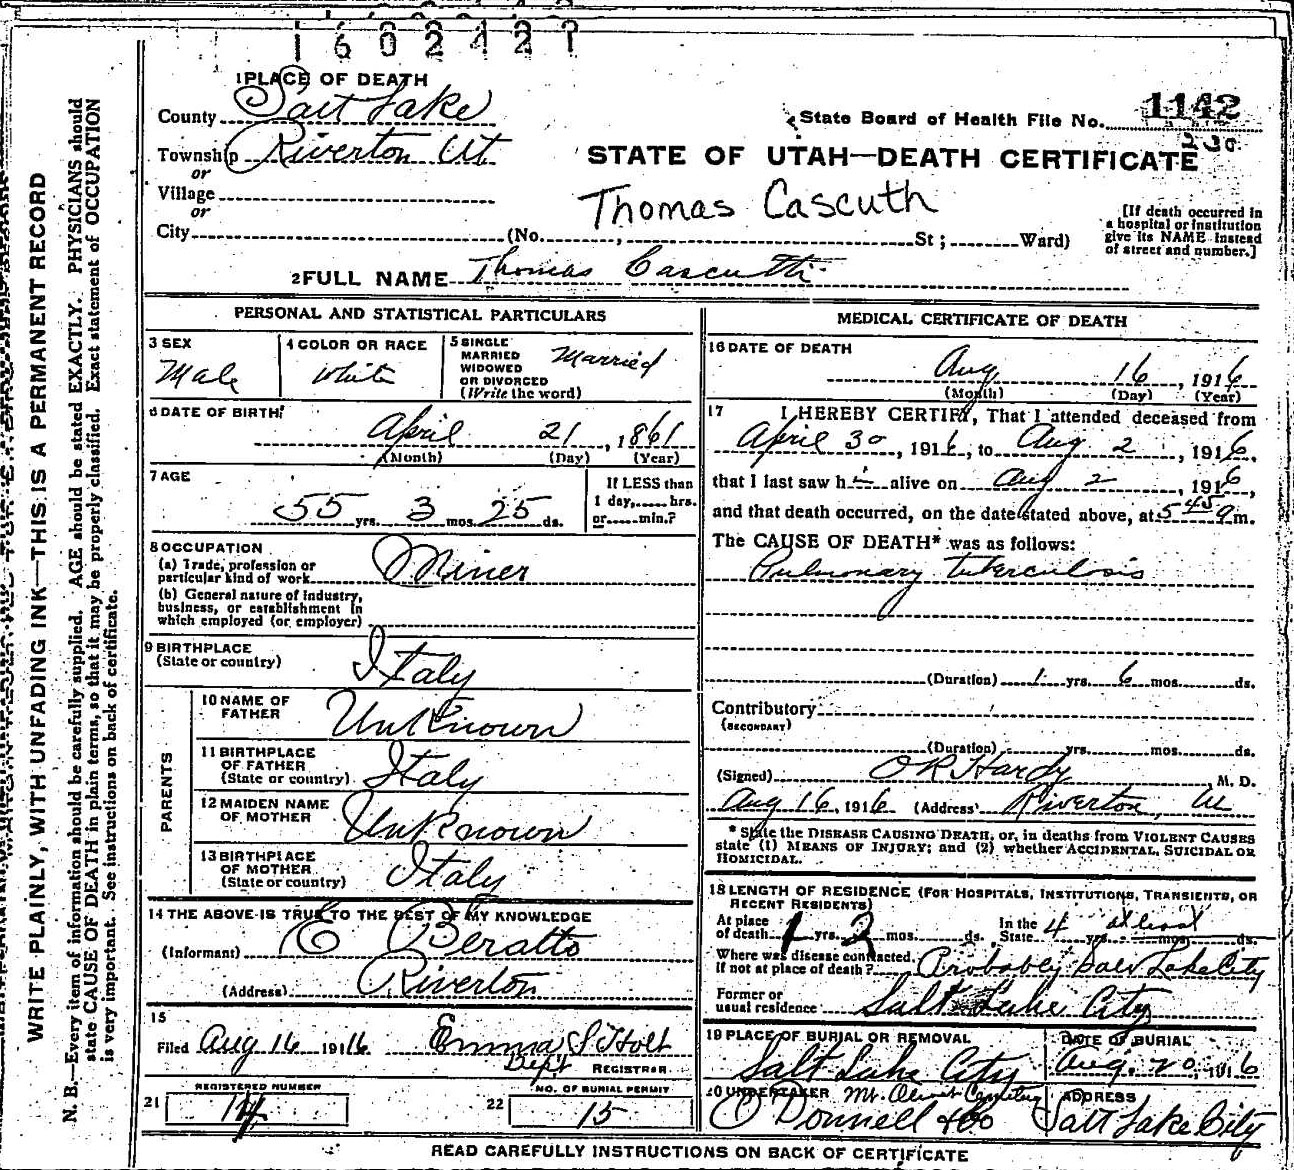 1 6 0 2 4 2 ?
1 PLACE OF DEATH
County Salt Lake
Township Riverton Ut
or
Village
or
City (No. , St ; Ward)
State Board of Health File No. 1142
230
STATE OF UTAH—DEATH CERTIFICATE
Thomas Cascuth
[If death occurred in
a hospital or institution
give its NAME instead
of street and number.]
2 FULL NAME Thomas Cascuth
PERSONAL AND STATISTICAL PARTICULARS
3 SEX
Male
4 COLOR OR RACE
White
5 SINGLE
MARRIED
WIDOWED
OR DIVORCED
(Write the word)
Married
6 DATE OF BIRTH
April 21 , 1861
(Month) (Day) (Year)
7 AGE
55 yrs. 3 mos. 25 ds.
If LESS than
1 day, hrs.
or min.?
8 OCCUPATION
(a) Trade, profession or
particular kind of work Miner
(b) General nature of industry,
business, or establishment in
which employed (or employer)
9 BIRTHPLACE
(State or country) Italy
PARENTS
10 NAME OF
FATHER Unknown
11 BIRTHPLACE
OF FATHER
(State or country) Italy
12 MAIDEN NAME
OF MOTHER Unknown
13 BIRTHPLACE
OF MOTHER
(State or country) Italy
14 THE ABOVE IS TRUE TO THE BEST OF MY KNOWLEDGE
(Informant) E Beratto
(Address) Riverton
15
Filed Aug 16 1916 Emma S Holt
Dept REGISTRAR
REGISTERED NUMBER
21 14
NO. OF BURIAL PERMIT
22 15
MEDICAL CERTIFICATE OF DEATH
16 DATE OF DEATH
Aug 16 , 1916
(Month) (Day) (Year)
17 I HEREBY CERTIFY, That I attended deceased from
April 30 , 1916, to Aug 2 , 1916,
that I last saw h i alive on Aug 2 , 1916,
and that death occurred, on the date stated above, at 5 45 a m.
The CAUSE OF DEATH* was as follows:
Pulmonary tuberculosis
(Duration) 1 yrs. 6 mos. ds.
Contributory
(SECONDARY)
(Duration) yrs. mos. ds.
(Signed) O R Hardy M. D.
Aug 16, 1916 (Address) Riverton, Ut
* State the DISEASE CAUSING DEATH, or, in deaths from VIOLENT CAUSES
state (1) MEANS OF INJURY; and (2) whether ACCIDENTAL, SUICIDAL OR
HOMICIDAL.
18 LENGTH OF RESIDENCE (FOR HOSPITALS, INSTITUTIONS, TRANSIENTS, OR
RECENT RESIDENTS)
At place
of death 1 yrs. 2 mos. ds.
In the
State 4 yrs. mos. ds.
at least
Where was disease contracted,
If not at place of death? Probably Salt Lake City
Former or
usual residence Salt Lake City
19 PLACE OF BURIAL OR REMOVAL
Salt Lake City
DATE OF BURIAL
Aug. 20, 1916
20 UNDERTAKER Mt. Olivet Cemetery
O Donnell & Co
ADDRESS
Salt Lake City
READ CAREFULLY INSTRUCTIONS ON BACK OF CERTIFICATE
WRITE PLAINLY, WITH UNFADING INK—THIS IS A PERMANENT RECORD
N. B.—Every item of information should be carefully supplied. AGE should be stated EXACTLY. PHYSICIANS should
state CAUSE OF DEATH in plain terms, so that it may be properly classified. Exact statement of OCCUPATION
is very important. See instructions on back of certificate.